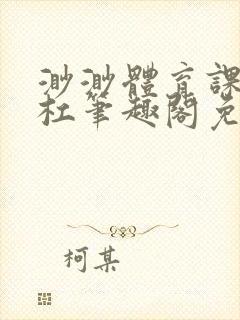 渺渺體育課
杜笔趣閣免
柯某